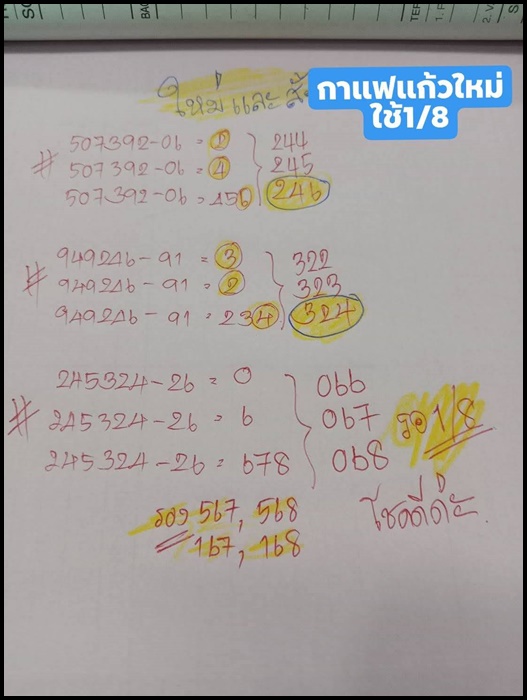 ใหม่และ
กาแฟแก้วใหม่
ใช้1/8
# 507392-06 = 2 244
507392-06 = 4 245
507392-06 = 456 246
# 949246-91 = 3 322
949246-91 = 2 323
949246-91 = 234 324
# 245324-26 = 0 066
245324-26 = 6 067 รอ 1/8
245324-26 = 678 068
รอง 567, 568 โชคดีค่ะ
167, 168